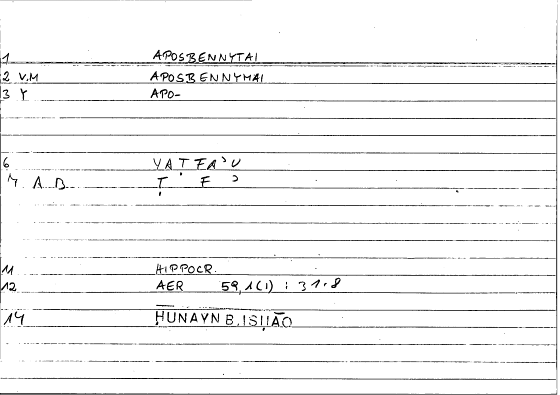 1 APOSBENNYTAI
2 V.M APOSBENNYMAI
3 Y APO-
6 YAṬFAʾU
7 A B Ṭ F ʾ
11 HIPPOCR.
12 AER 59,1(1) : 31.8
14 ḤUNAYN B. ISḤĀQ